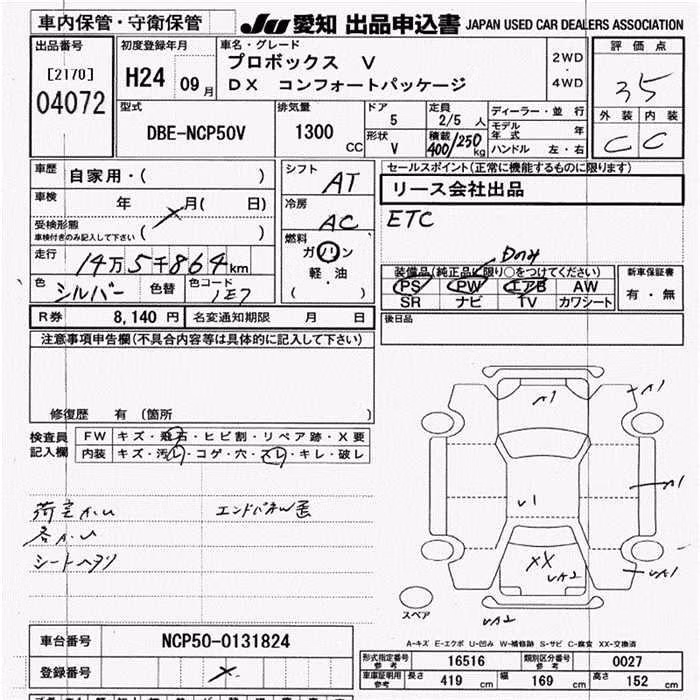 車内保管・守衛保管
JU 愛知 出品申込書 JAPAN USED CAR DEALERS ASSOCIATION
出品番号
[2170]
04072
初度登録年月
H24 09月
車名・グレード
プロボックス V
DX コンフォートパッケージ
2WD
・
4WD
評価点
35
外装 内装
C C
型式
DBE-NCP50V
排気量
1300 CC
ドア
5
形状
V
定員
2/5 人
積載
400/250 kg
ディーラー・並行
モデル年式 年
ハンドル 左・右
車歴
自家用・( )
車検 年 月( 日)
受検形態
車検付きのみ記入して下さい ( )
走行
14万5千864km
色 シルバー 色替 色コード 1E7
シフト
AT
冷房
AC
燃料
ガソリン
軽・油
( )
セールスポイント(正常に機能するものに限ります)
リース会社出品
ETC
Dのみ
装備品(純正品に限り○をつけてください)
PS PW エアB AW
SR ナビ TV カワシート
新車保証書
有・無
後日品
R券 8,140 円 名変通知期限 月 日
注意事項申告欄(不具合内容等は具体的に記入して下さい)
修復歴 有(箇所 )
検査員
記入欄
FW キズ・飛石・ヒビ割・リペア跡・X要
内装 キズ・汚レ・コゲ・穴・スレ・キレ・破レ
シートヘタリ
A1
A1
A1
U1
XX
UA2
UA1
UA2
スペア
A-キズ E-エクボ U-凹み W-補修跡 S-サビ C-腐食 XX-交換済
車台番号 NCP50-0131824
登録番号
形式指定番号
参考
16516
類別区分番号
参考
0027
車庫証明用
参考
長さ 419 cm 幅 169 cm 高さ 152 cm